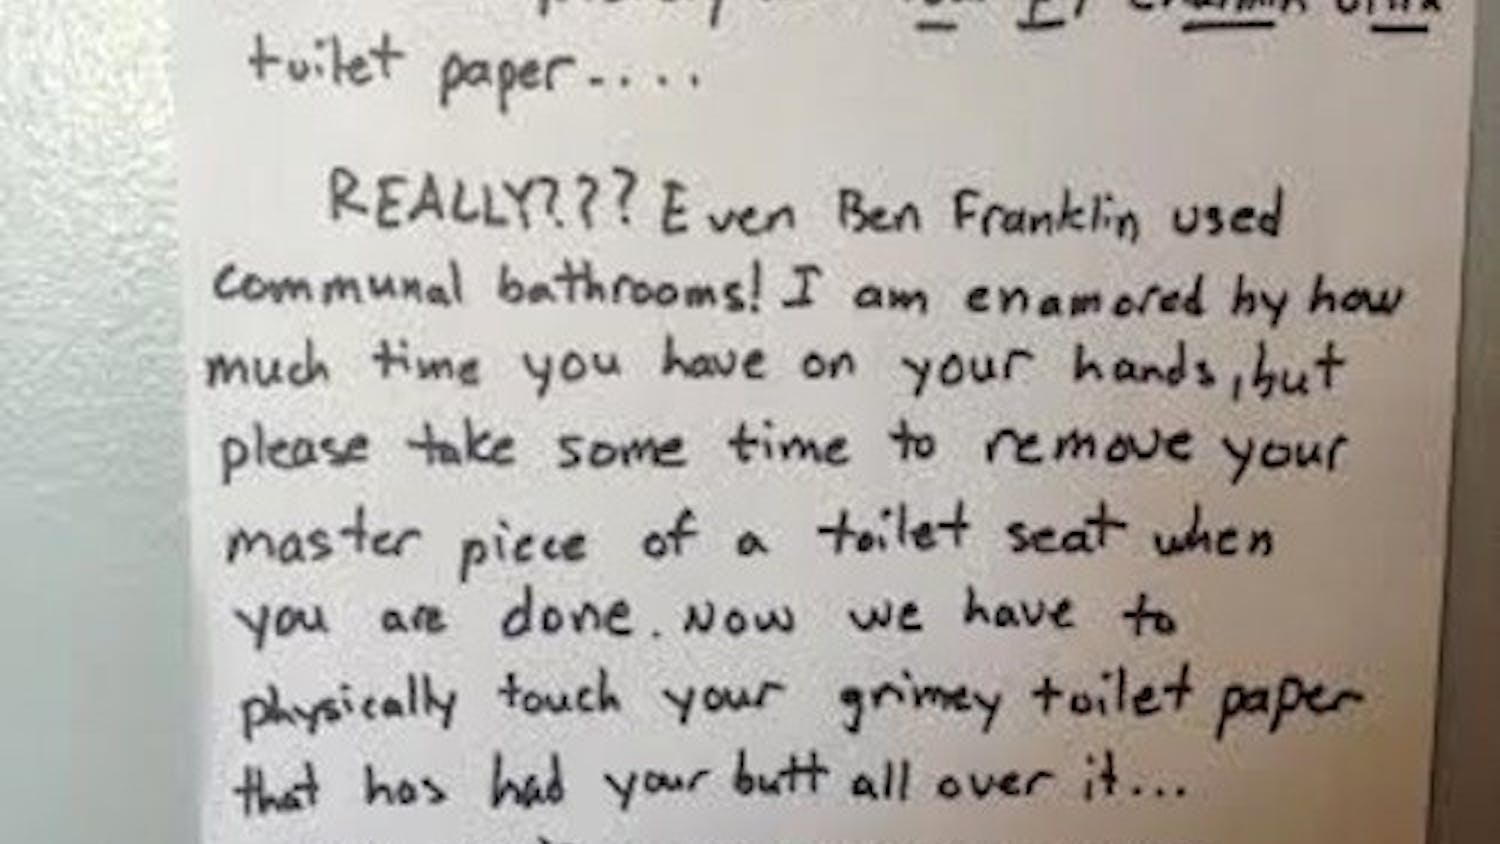 toilet paper-....
REALLY??? Even Ben Franklin used
communal bathrooms! I am enamored by how
much time you have on your hands, but
please take some time to remove your
master piece of a toilet seat when
you are done. Now we have to
physically touch your grimey toilet paper
that has had your butt all over it...